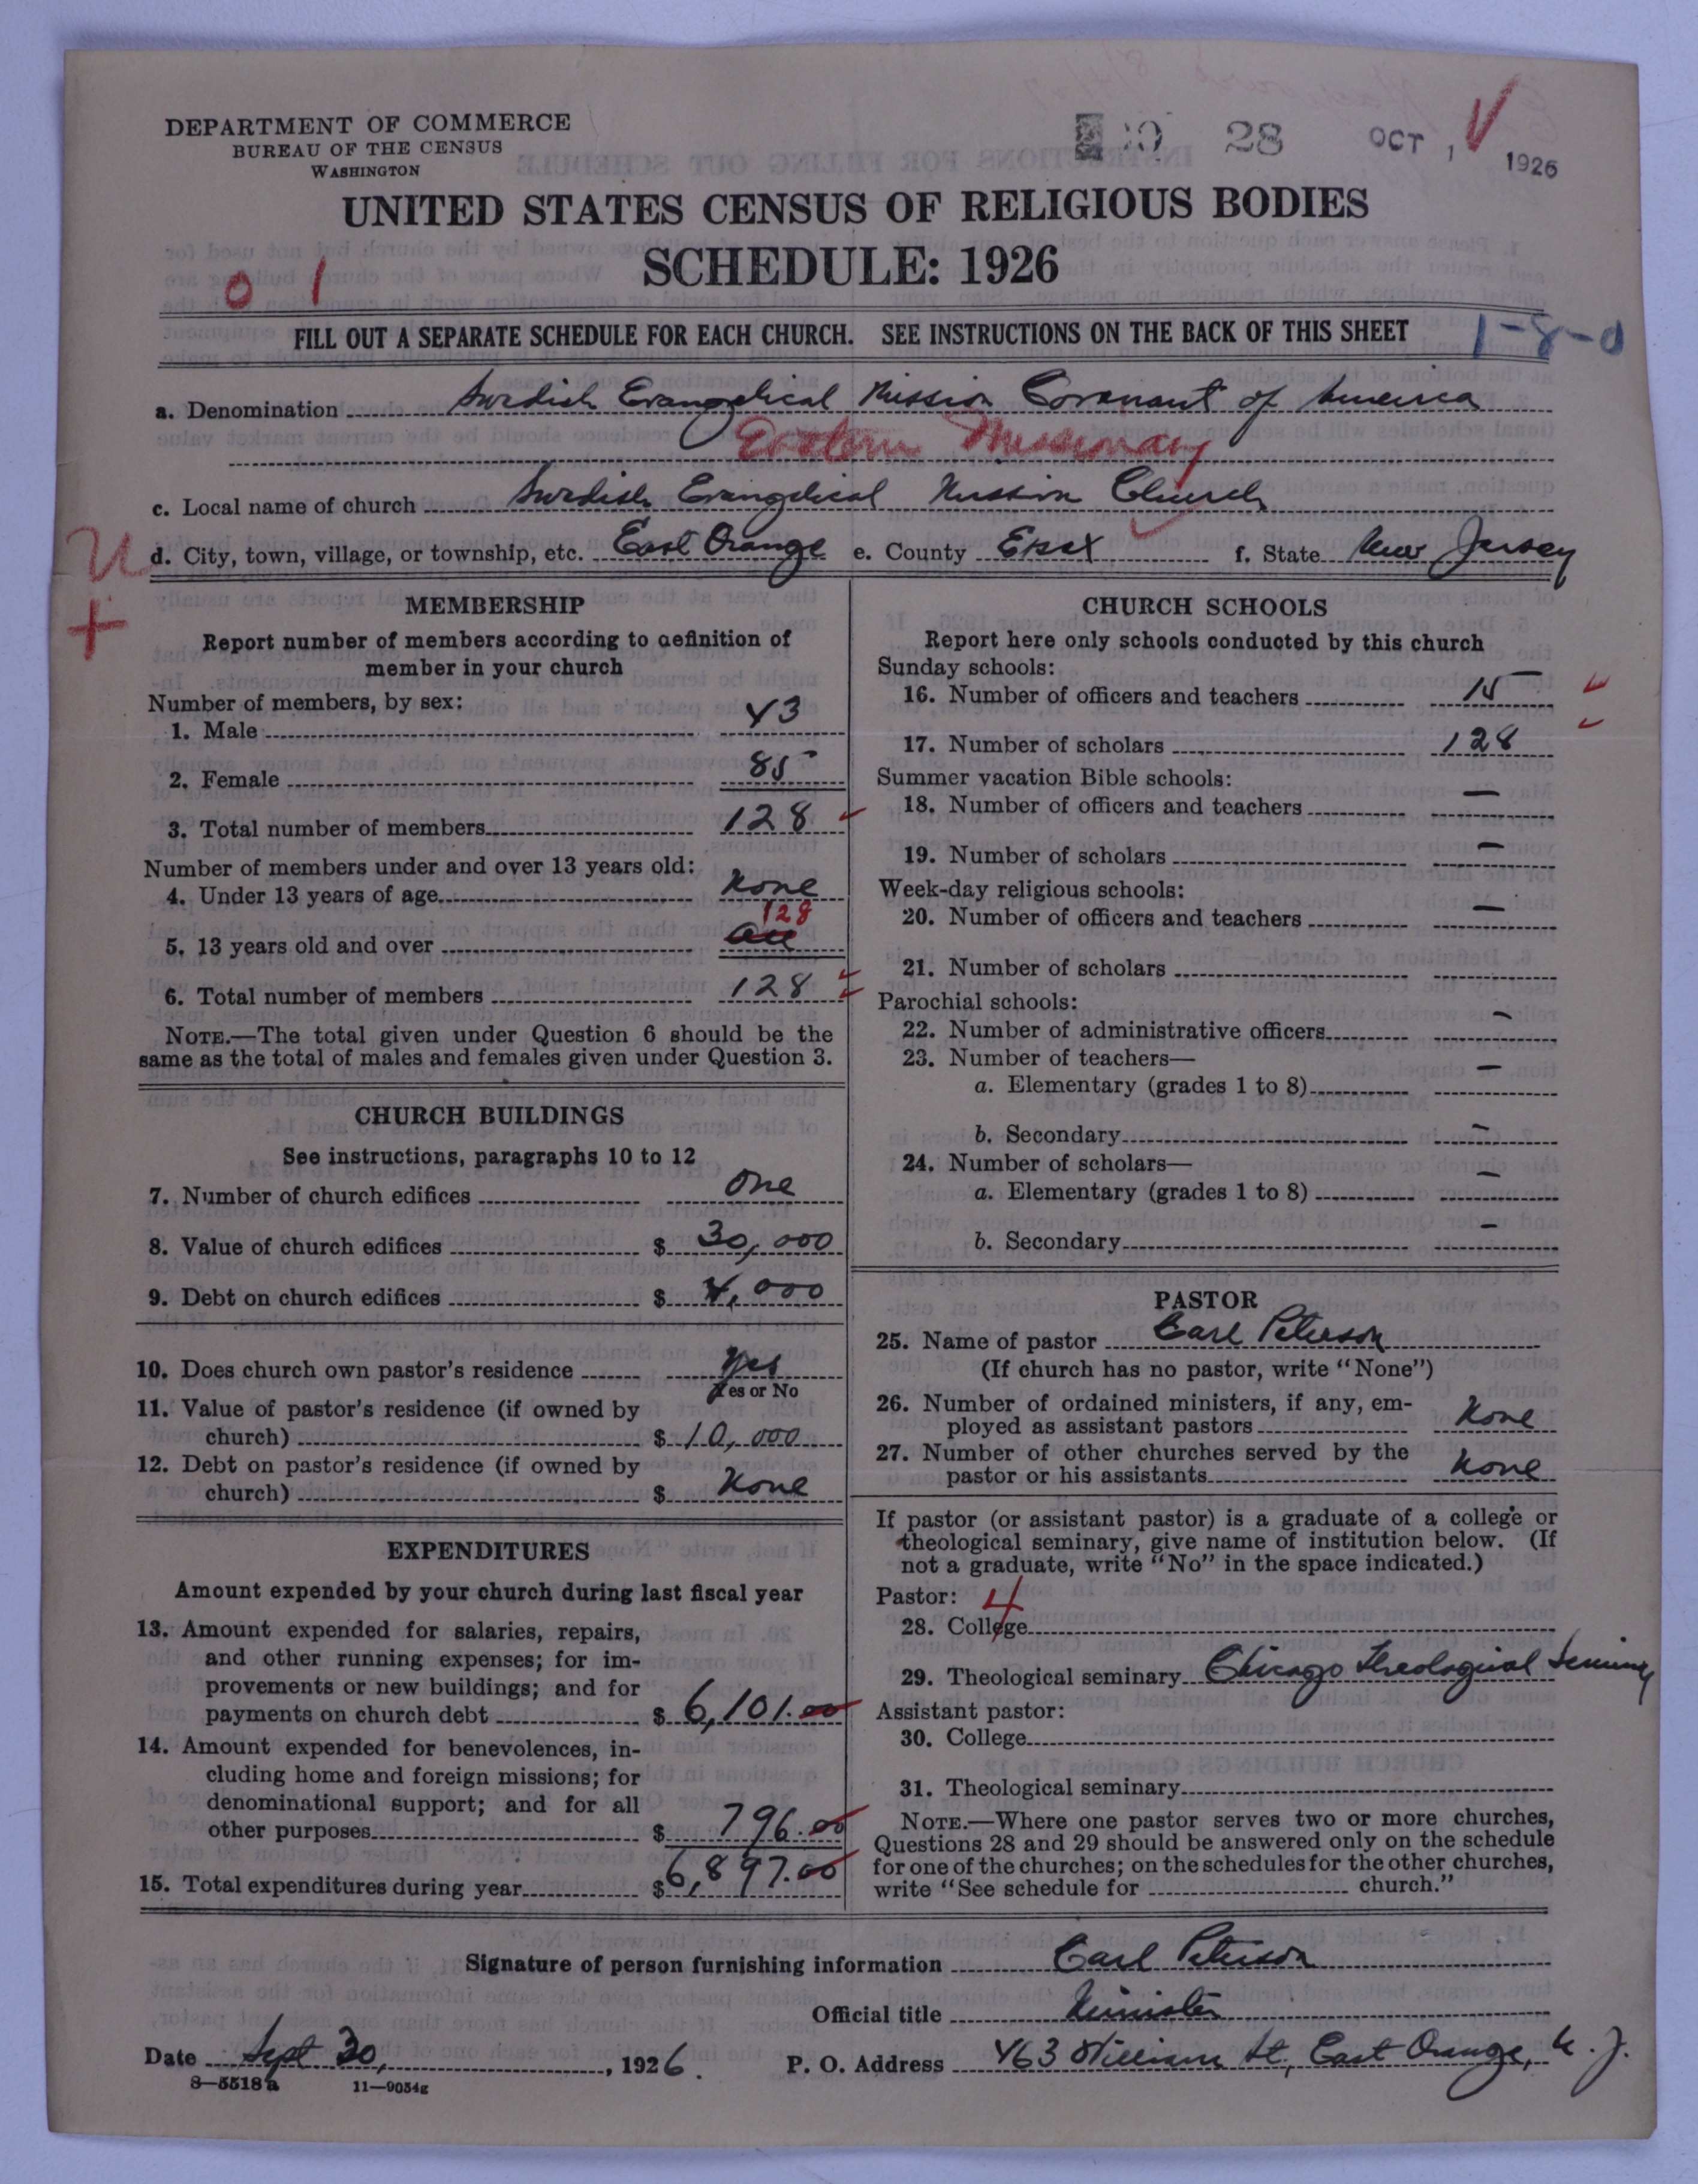 DEPARTMENT OF COMMERCE
BUREAU OF THE CENSUS
WASHINGTON
28 OCT 1 1926
UNITED STATES CENSUS OF RELIGIOUS BODIES
SCHEDULE: 1926
0 1
FILL OUT A SEPARATE SCHEDULE FOR EACH CHURCH. SEE INSTRUCTIONS ON THE BACK OF THIS SHEET
1-8-0
a. Denomination Swedish Evangelical Mission Covenant of America
Eastern Missionary
c. Local name of church Swedish Evangelical Mission Church
d. City, town, village, or township, etc. East Orange e. County Essex f. State New Jersey
MEMBERSHIP
Report number of members according to definition of
member in your church
Number of members, by sex:
1. Male 43
2. Female 85
3. Total number of members 128
Number of members under and over 13 years old:
4. Under 13 years of age None
128
5. 13 years old and over all
6. Total number of members 128
NOTE.—The total given under Question 6 should be the
same as the total of males and females given under Question 3.
CHURCH BUILDINGS
See instructions, paragraphs 10 to 12
7. Number of church edifices One
8. Value of church edifices $ 30,000
9. Debt on church edifices $ 4,000
10. Does church own pastor's residence Yes
Yes or No
11. Value of pastor's residence (if owned by
church) $ 10,000
12. Debt on pastor's residence (if owned by
church) $ None
EXPENDITURES
Amount expended by your church during last fiscal year
13. Amount expended for salaries, repairs,
and other running expenses; for im-
provements or new buildings; and for
payments on church debt $ 6,101.00
14. Amount expended for benevolences, in-
cluding home and foreign missions; for
denominational support; and for all
other purposes $ 796.00
15. Total expenditures during year $ 6,897.00
CHURCH SCHOOLS
Report here only schools conducted by this church
Sunday schools:
16. Number of officers and teachers 15
17. Number of scholars 128
Summer vacation Bible schools:
18. Number of officers and teachers —
19. Number of scholars —
Week-day religious schools:
20. Number of officers and teachers —
21. Number of scholars
Parochial schools:
22. Number of administrative officers —
23. Number of teachers—
a. Elementary (grades 1 to 8) —
b. Secondary —
24. Number of scholars—
a. Elementary (grades 1 to 8) —
b. Secondary —
PASTOR
25. Name of pastor Carl Peterson
(If church has no pastor, write "None")
26. Number of ordained ministers, if any, em-
ployed as assistant pastors None
27. Number of other churches served by the
pastor or his assistants None
If pastor (or assistant pastor) is a graduate of a college or
theological seminary, give name of institution below. (If
not a graduate, write "No" in the space indicated.)
Pastor: 4
28. College
29. Theological seminary Chicago Theological Seminary
Assistant pastor:
30. College
31. Theological seminary
NOTE.—Where one pastor serves two or more churches,
Questions 28 and 29 should be answered only on the schedule
for one of the churches; on the schedules for the other churches,
write "See schedule for church."
Signature of person furnishing information Carl Peterson
Official title Minister
Date Sept 30, 1926. P. O. Address 463 William St., East Orange, N. J.
8—5518a 11—9054g